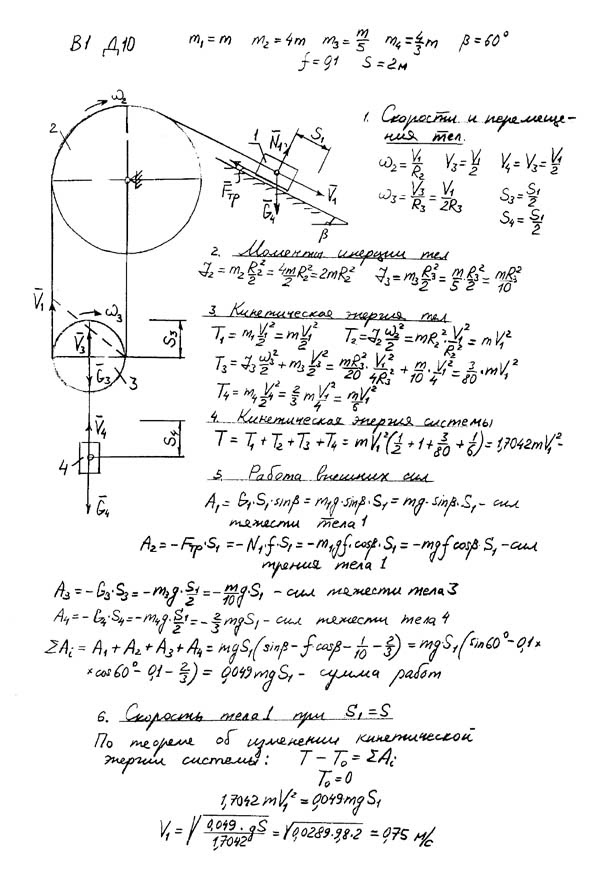 В1 Д10 m₁ = m m₂ = 4m m₃ = m/5 m₄ = 4/3 m β = 60°
f = 0,1 S = 2м
ω₂
2
1
N̄₁
S₁
F̄тр
Ḡ₄
V̄₁
β
V̄₁
ω₃
V̄₃
S₃
Ḡ₃
3
V̄₄
S₄
4
Ḡ₄
1. Скорости и перемеще-
ния тел.
ω₂ = V₁/R₂ V₃ = V₁/2 V₄ = V₃ = V₁/2
ω₃ = V₃/R₃ = V₁/2R₃ S₃ = S₁/2
S₄ = S₁/2
2. Моменты инерции тел
J₂ = m₂ R₂²/2 = 4m/2 R₂² = 2mR₂² J₃ = m₃ R₃²/2 = m/5 R₃²/2 = mR₃²/10
3. Кинетическая энергия тел
T₁ = m₁ V₁²/2 = m V₁²/2 T₂ = J₂ ω₂²/2 = mR₂² · V₁²/R₂² = mV₁²
T₃ = J₃ ω₃²/2 + m₃ V₃²/2 = mR₃²/20 · V₁²/4R₃² + m/10 · V₁²/4 = 3/80 · mV₁²
T₄ = m₄ V₄²/2 = 2/3 m V₁²/4 = m V₁²/6
4. Кинетическая энергия системы
T = T₁ + T₂ + T₃ + T₄ = mV₁² (1/2 + 1 + 3/80 + 1/6) = 1,7042 mV₁² -
5. Работа внешних сил
A₁ = G₁·S₁·sinβ = m₁g·sinβ·S₁ = mg·sinβ·S₁ - сил
тяжести тела 1
A₂ = -Fтр·S₁ = -N₁·f·S₁ = -m₁gf·cosβ·S₁ = -mgf cosβ·S₁ - сил
трения тела 1
A₃ = -G₃·S₃ = -m₃g·S₁/2 = -m/10 g·S₁ - сил тяжести тела 3
A₄ = -G₄·S₄ = -m₄g·S₁/2 = -2/3 mgS₁ - сил тяжести тела 4
ΣAᵢ = A₁ + A₂ + A₃ + A₄ = mgS₁ (sinβ - f cosβ - 1/10 - 2/3) = mgS₁ (sin60° - 0,1 ×
× cos60° - 0,1 - 2/3) = 0,049 mgS₁ - сумма работ
6. Скорость тела 1 при S₁ = S
По теореме об изменении кинетической
энергии системы: T - T₀ = ΣAᵢ
T₀ = 0
1,7042 mV₁² = 0,049 mgS₁
V₁ = √(0,049·gS/1,7042) = √(0,0289·9,8·2) = 0,75 м/с